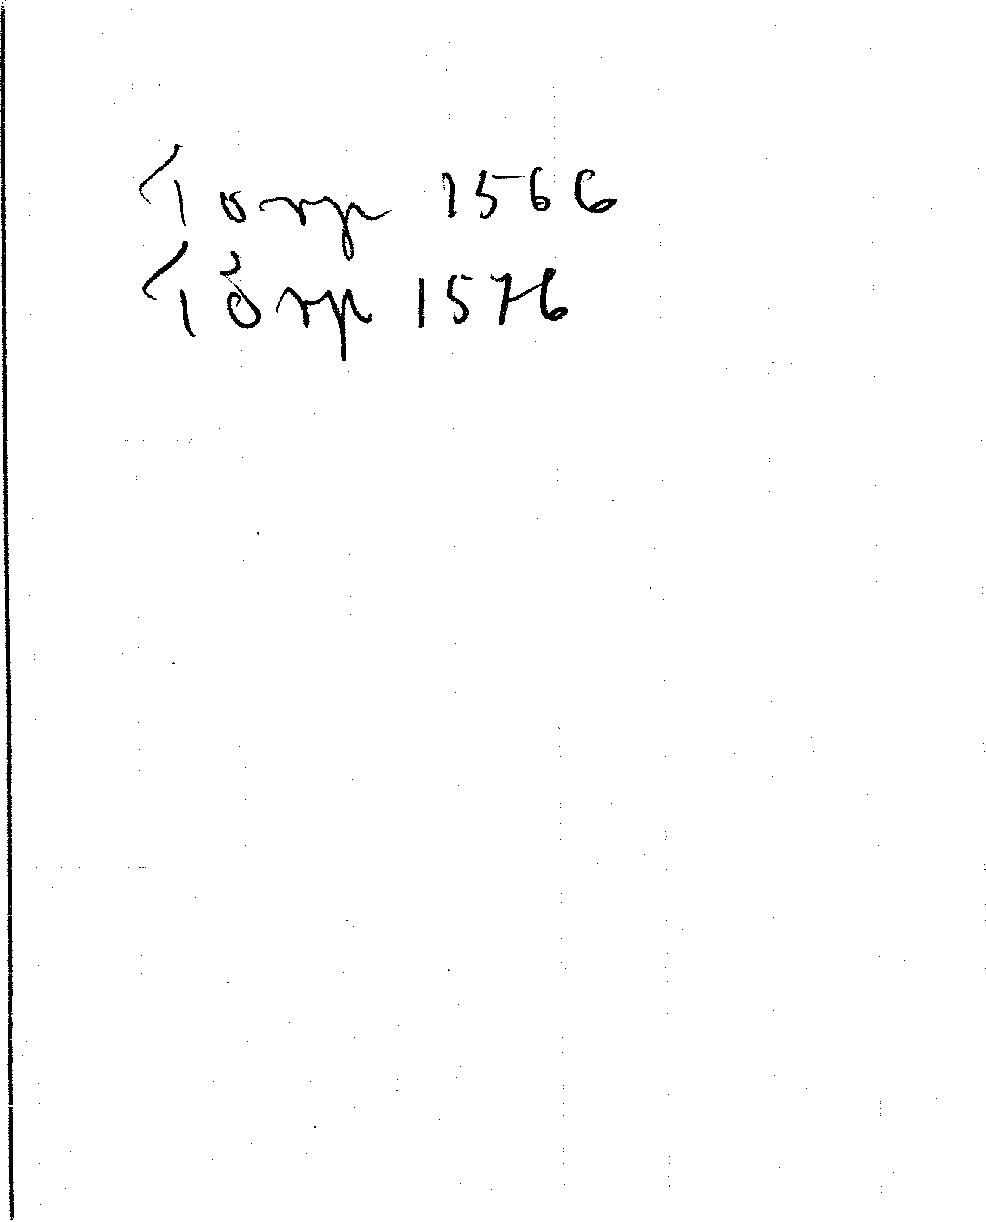 Torp 1566
Törp 1576